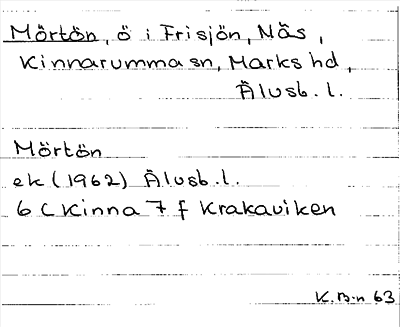 Mörtön, ö i Frisjön, Näs,
Kinnarumma sn, Marks hd,
Älvsb. l.
Mörtön
ek (1962) Älvsb. l.
6 C Kinna 7 f Krakaviken
K. B-n 63